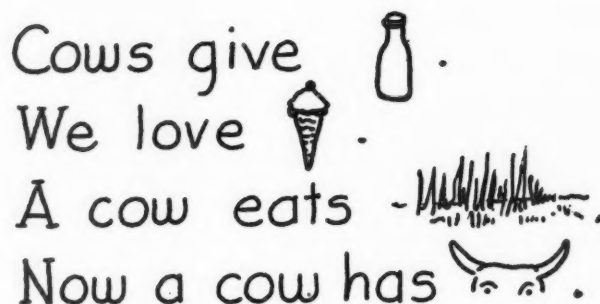 Cows give .
We love .
A cow eats .
Now a cow has .